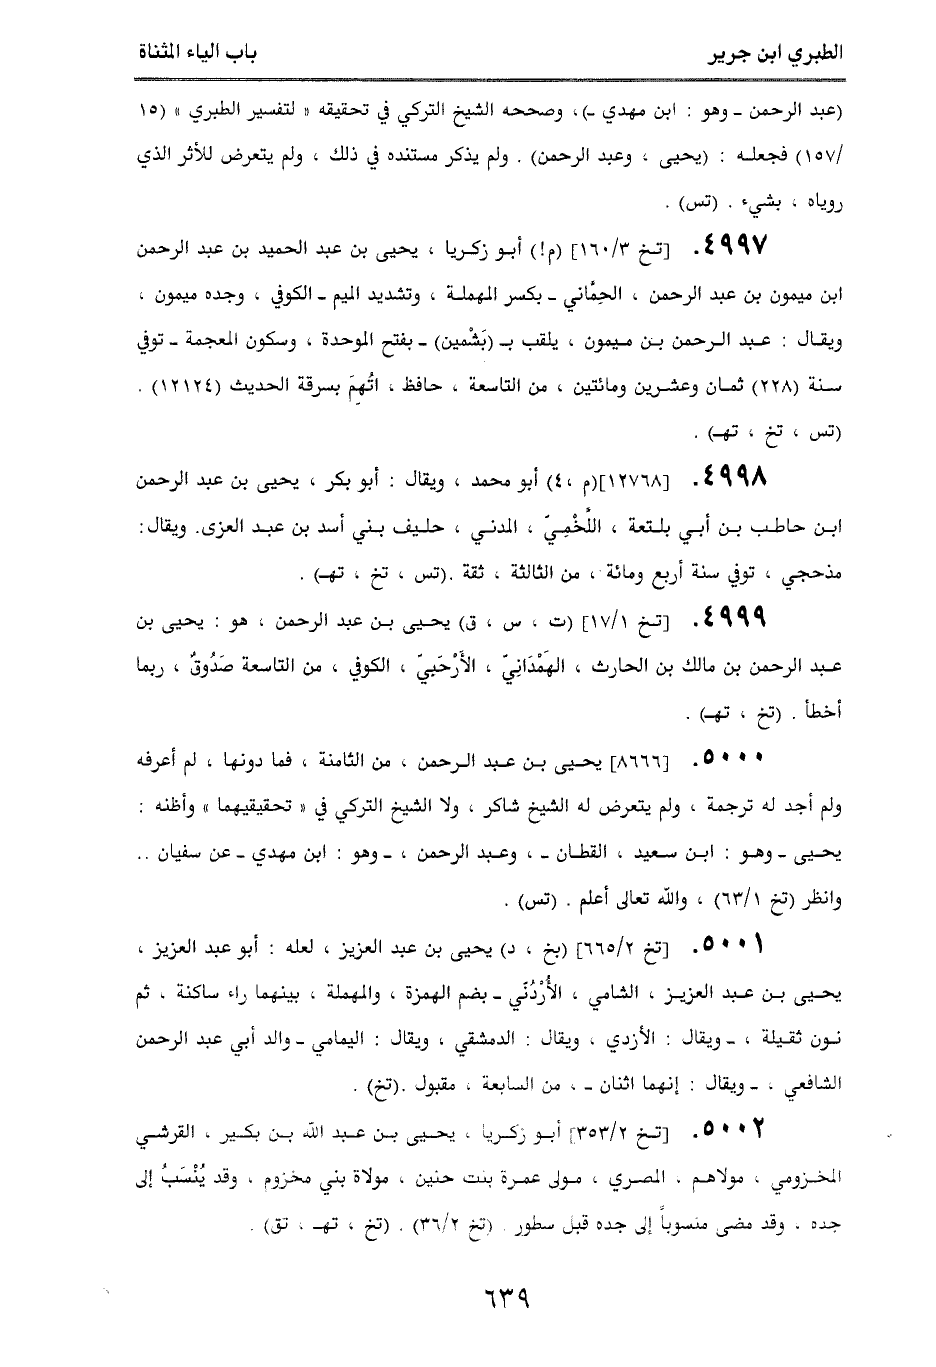 الطبري ابن جرير
باب الياء المثناة
(عبد الرحمن ـ وهو : ابن مهدي ـ)، وصححه الشيخ التركي في تحقيقه « لتفسير الطبري » (١٥
/١٥٧) فجعله : (يحيى ، وعبد الرحمن) . ولم يذكر مستنده في ذلك ، ولم يتعرض للأثر الذي
روياه ، بشيء . (تس) .
٤٩٩٧. [تخ ١٦٠/٣] (م!) أبو زكريا ، يحيى بن عبد الحميد بن عبد الرحمن
ابن ميمون بن عبد الرحمن ، الحِمَّاني ـ بكسر المهملة ، وتشديد الميم ـ الكوفي ، وجده ميمون ،
ويقال : عبد الرحمن بن ميمون ، يلقب بـ (بَشْمين) ـ بفتح الموحدة ، وسكون المعجمة ـ توفي
سنة (٢٢٨) ثمان وعشرين ومائتين ، من التاسعة ، حافظ ، اتُّهِمَ بسرقة الحديث (١٢١٢٤) .
(تس ، تخ ، تهـ) .
٤٩٩٨. [١٢٧٦٨](م ،٤) أبو محمد ، ويقال : أبو بكر ، يحيى بن عبد الرحمن
ابن حاطب بن أبي بلتعة ، اللَّخْمِيّ ، المدني ، حليف بني أسد بن عبد العزى. ويقال:
مذحجي ، توفي سنة أربع ومائة ، من الثالثة ، ثقة .(تس ، تخ ، تهـ) .
٤٩٩٩. [تخ ١٧/١] (ت ، س ، ق) يحيى بن عبد الرحمن ، هو : يحيى بن
عبد الرحمن بن مالك بن الحارث ، الهَمْدَانِيّ ، الأَرْحَبِيّ ، الكوفي ، من التاسعة صَدُوقٌ ، ربما
أخطأ . (تخ ، تهـ) .
٥٠٠٠. [٨٦٦٦] يحيى بن عبد الرحمن ، من الثامنة ، فما دونها ، لم أعرفه
ولم أجد له ترجمة ، ولم يتعرض له الشيخ شاكر ، ولا الشيخ التركي في « تحقيقيهما » وأظنه :
يحيى ـ وهو : ابن سعيد ، القطان ـ ، وعبد الرحمن ، ـ وهو : ابن مهدي ـ عن سفيان ..
وانظر (تخ ٦٣/١) ، والله تعالى أعلم . (تس) .
٥٠٠١. [تخ ٦٦٥/٢] (بخ ، د) يحيى بن عبد العزيز ، لعله : أبو عبد العزيز ،
يحيى بن عبد العزيز ، الشامي ، الأُرْدُنّي ـ بضم الهمزة ، والمهملة ، بينهما راء ساكنة ، ثم
نون ثقيلة ، ـ ويقال : الأزدي ، ويقال : الدمشقي ، ويقال : اليمامي ـ والد أبي عبد الرحمن
الشافعي ، ـ ويقال : إنهما اثنان ـ ، من السابعة ، مقبول .(تخ) .
٥٠٠٢. [تخ ٣٥٣/٢] أبو زكريا ، يحيى بن عبد الله بن بكير ، القرشي
المخزومي ، مولاهم ، المصري ، مولى عمرة بنت حنين ، مولاة بني مخزوم ، وقد يُنْسَبُ إلى
جده ، وقد مضى منسوباً إلى جده قبل سطور . (تخ ٣٦/٢) . (تخ ، تهـ ، تق) .
٦٣٩